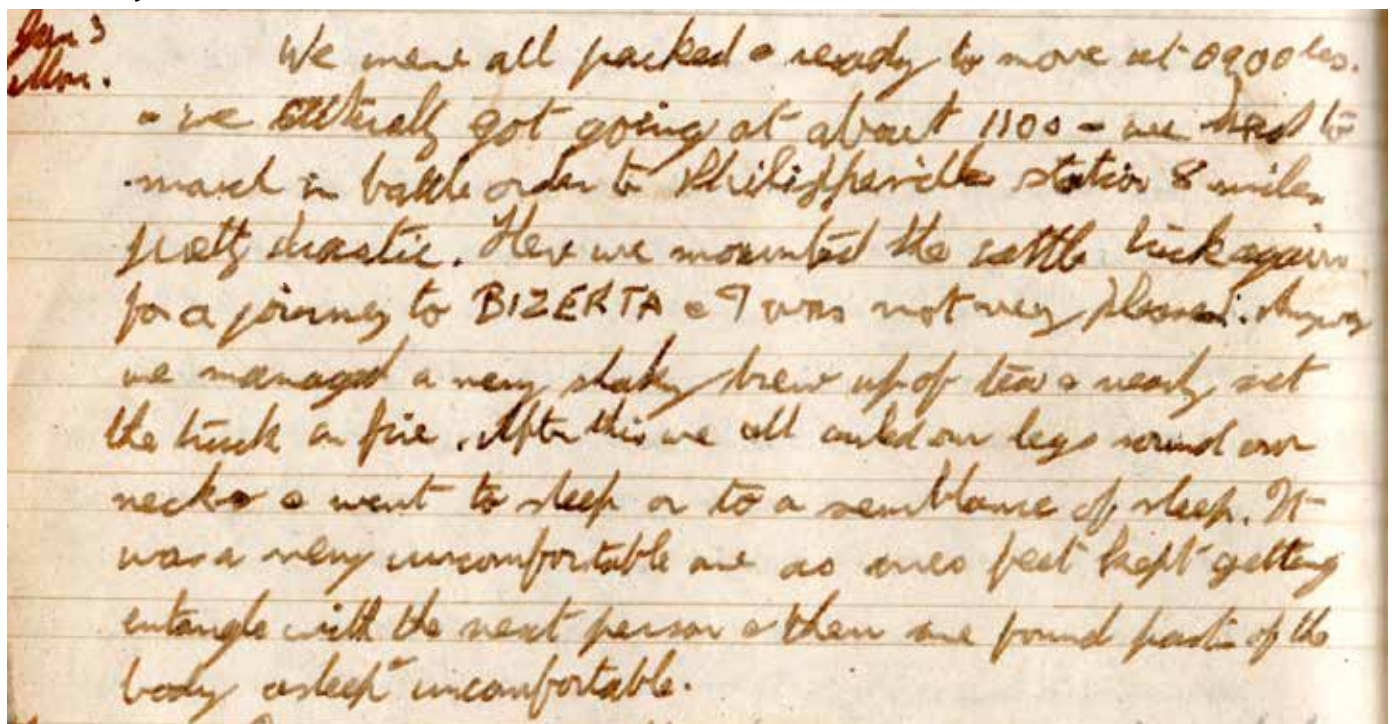 Jan 3
Mon.
We were all packed & ready to move at 0900 hrs.
& we actually got going at about 1100 - we had to
march in battle order to Philippeville station 8 miles
pretty drastic. Here we mounted the cattle truck again
for a journey to BIZERTA & I was not very pleased. Anyway
we managed a very shaky brew up of tea & nearly set
the truck on fire. After this we all curled our legs round our
necks & went to sleep or to a semblance of sleep. It
was a very uncomfortable one as ones feet kept getting
entangle with the next person & then one found parts of the
body asleep & uncomfortable.